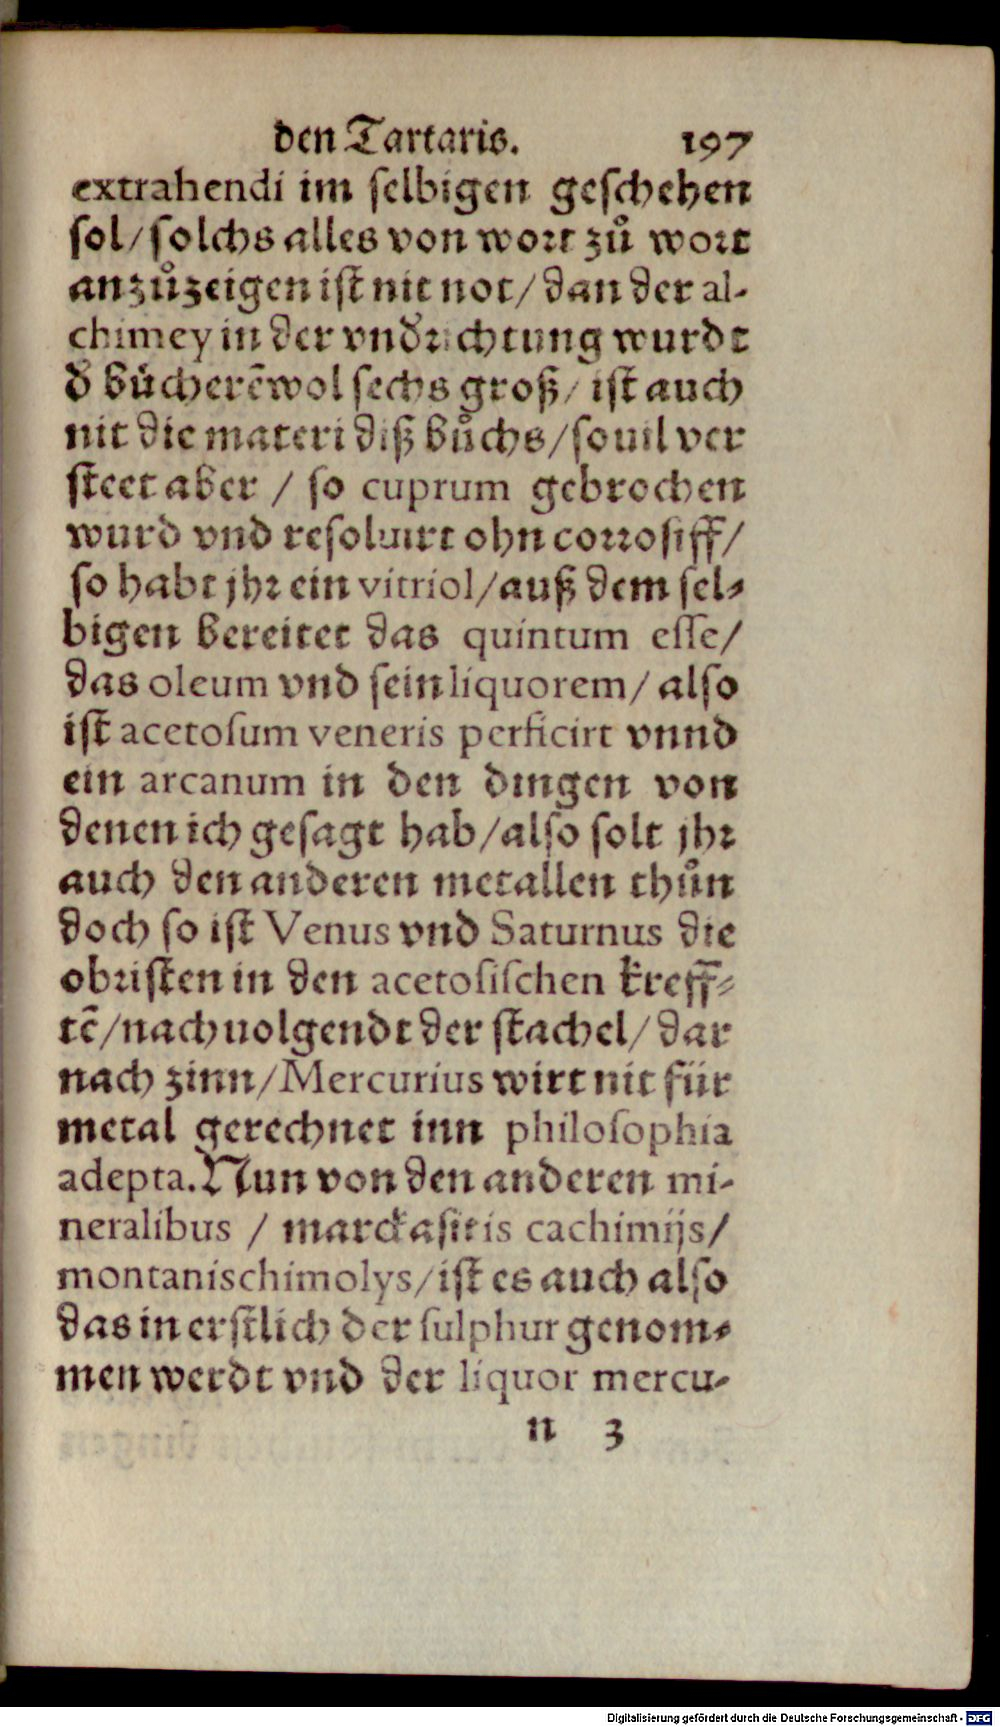 den Tartaris. 197
extrahendi im selbigen geschehen
sol/solchs alles von wort zů wort
anzůzeigen ist nit not/dan der al-
chimey in der vndrichtung wurdt
d bůcherẽ wol sechs groß/ ist auch
nit die materi diß bůchs/souil ver
steet aber / so cuprum gebrochen
wurd vnd resoluirt ohn corrosiff/
so habt jhr ein vitriol/auß dem sel-
bigen bereitet das quintum esse/
das oleum vnd sein liquorem/ also
ist acetosum veneris perficirt vnnd
ein arcanum in den dingen von
denen ich gesagt hab/also solt jhr
auch den anderen metallen thůn
doch so ist Venus vnd Saturnus die
obristen in den acetosischen kreff-
tẽ/nachuolgendt der stachel/ dar
nach zinn/Mercurius wirt nit für
metal gerechnet inn philosophia
adepta. Nun von den anderen mi-
neralibus / marckasitis cachimijs/
montanischimolys/ist es auch also
das in erstlich der sulphur genom-
men werdt vnd der liquor mercu-
n 3
Digitalisierung gefördert durch die Deutsche Forschungsgemeinschaft - DFG